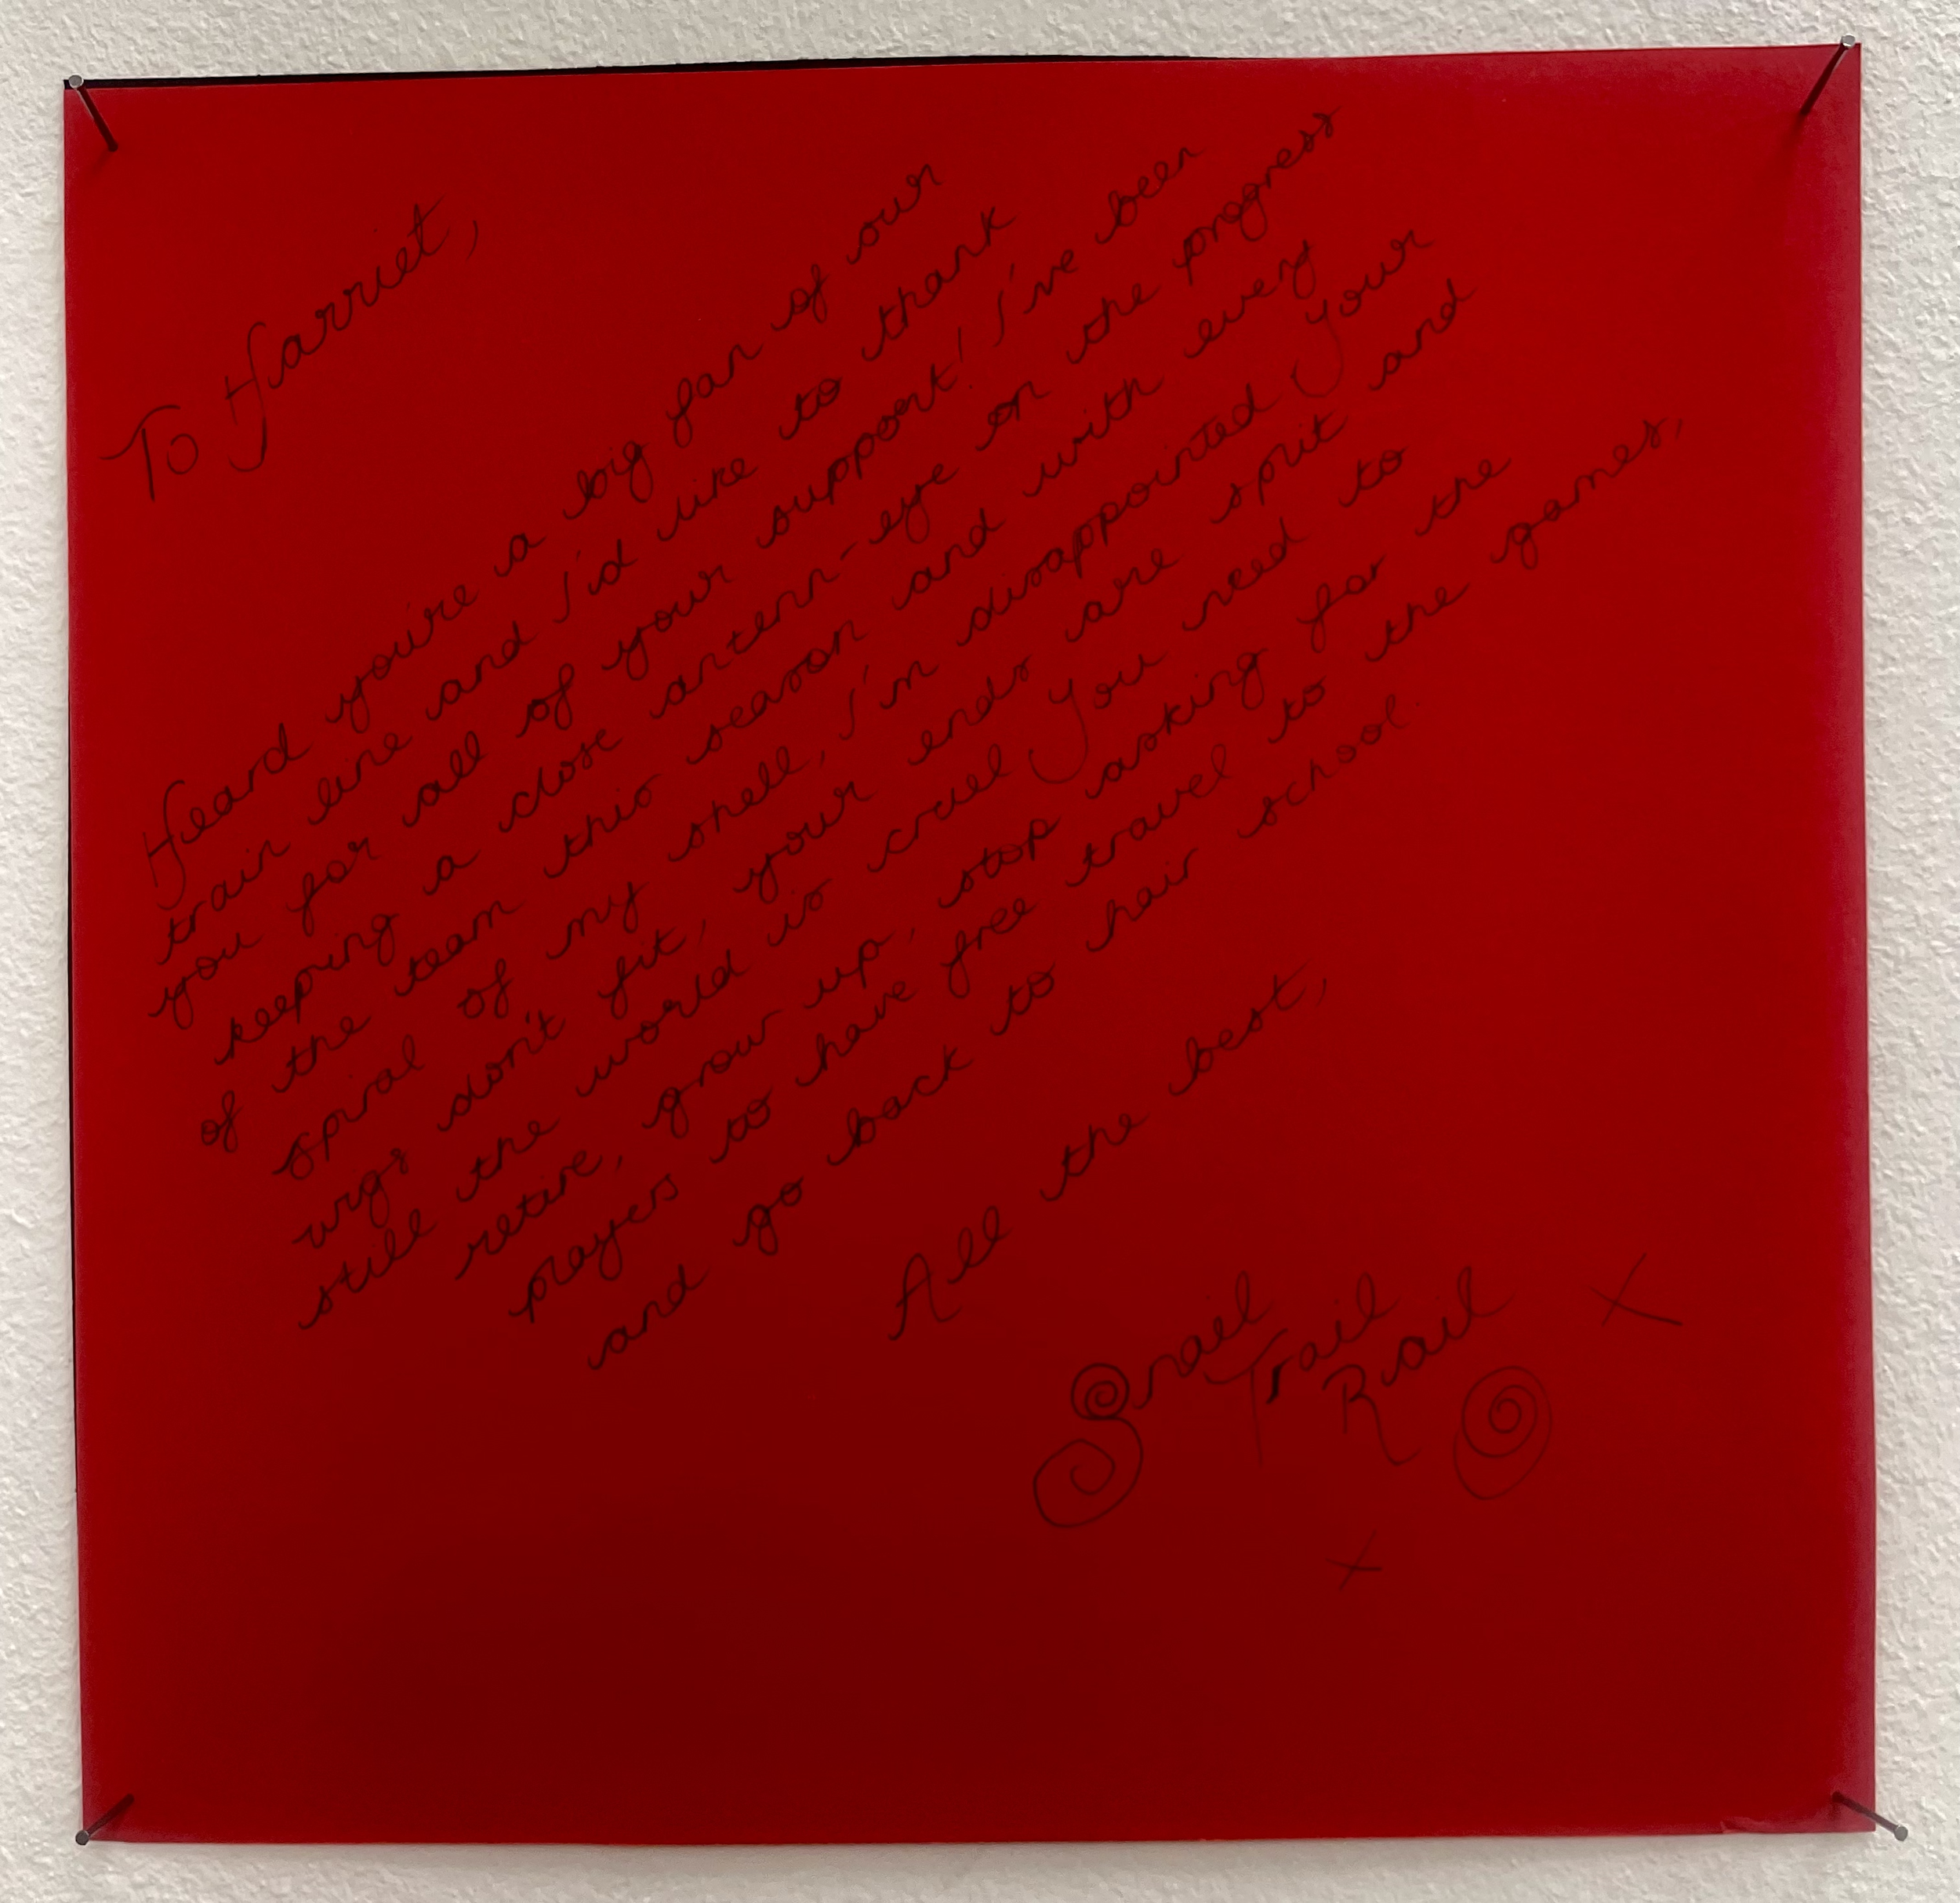 To Harriet,
Heard you're a big fan of our
train line and I'd like to thank
you for all of your support! I've been
keeping a close antenn-eye on the progress
of the team this season and with every
spiral of my shell, I'm disappointed Your
wigs don't fit, your ends are split and
still the world is cruel You need to
retire, grow up, stop asking for the
players to have free travel to the games,
and go back to hair school.
All the best,
Snail
Trail
Rail
x
x